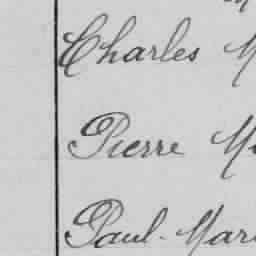 Charles M
Pierre M
Paul-Mar